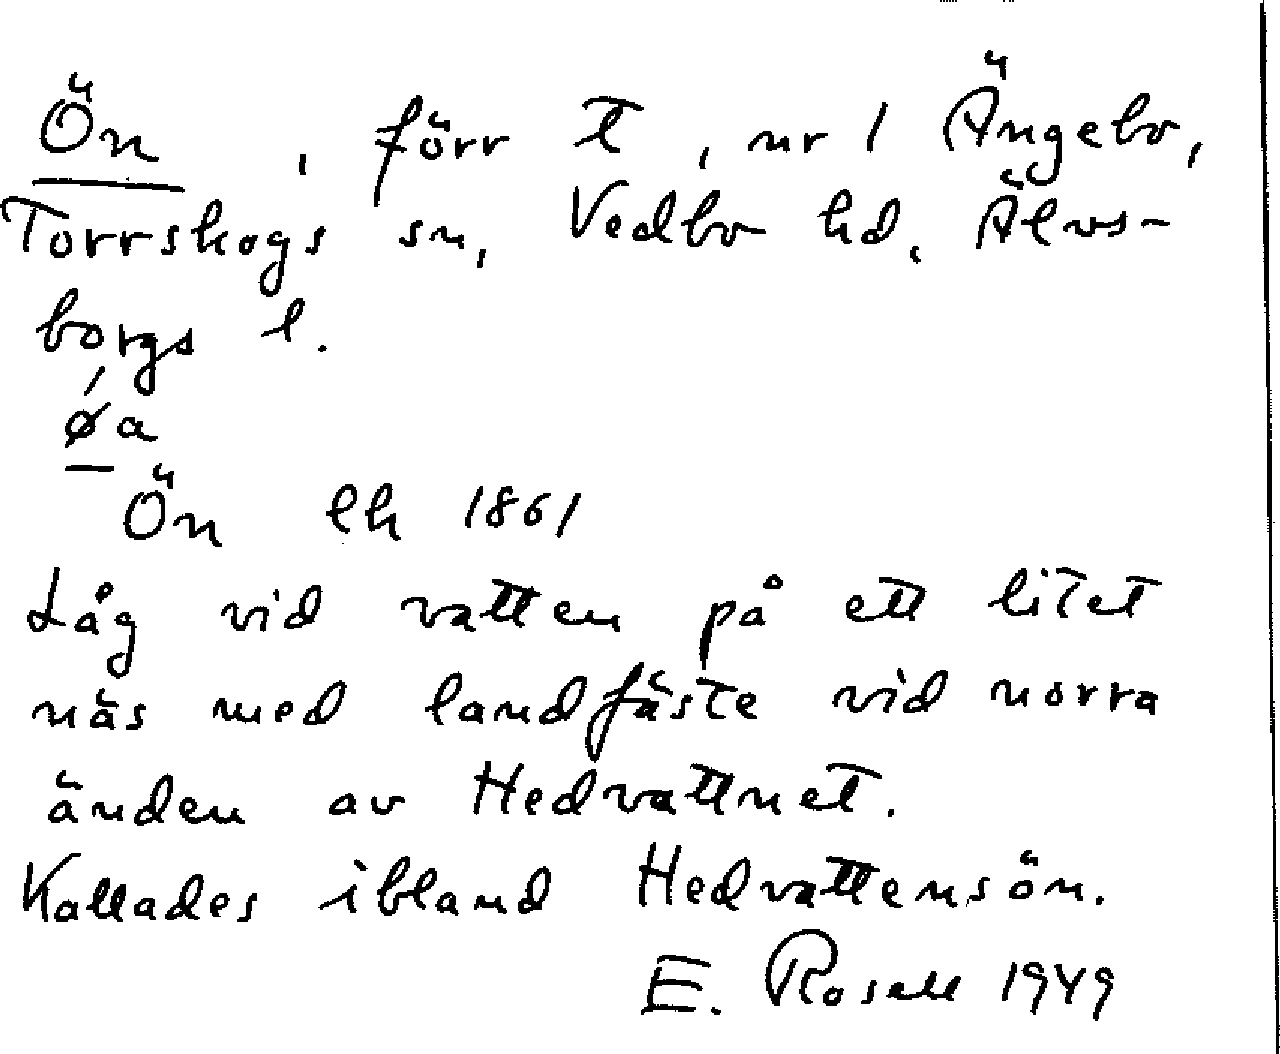 Ön, förr t, nr 1 Ängebo,
Torrskogs sn, Vedbo hd, Älvs-
borgs l.
ǿa
Ön lh 1861
Låg vid vatten på ett litet
näs med landfäste vid norra
änden av Hedvattnet.
Kallades ibland Hedvattensön.
E. Rosell 1949